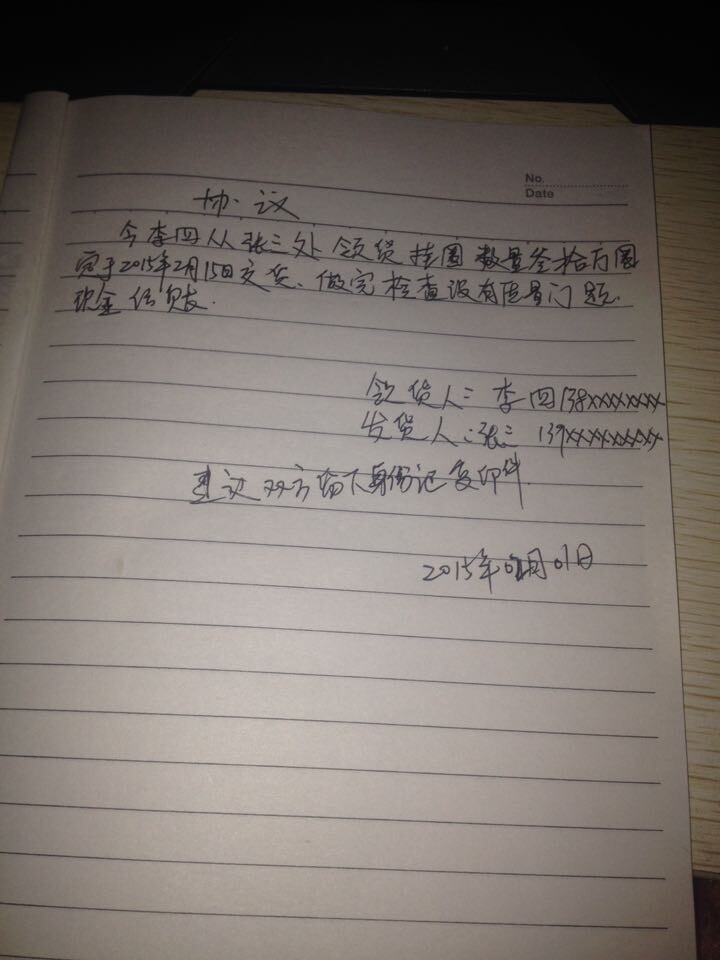 No.
Date
协议
今李四从张三处领货挂圈数量叁拾万圈
定于2015年2月15日交货、做完检查没有质量问题.
现金结账.
领货人:李四138xxxxxxxx
发货人:张三 139xxxxxxxx
建议双方留下身份证复印件.
2015年01月01日